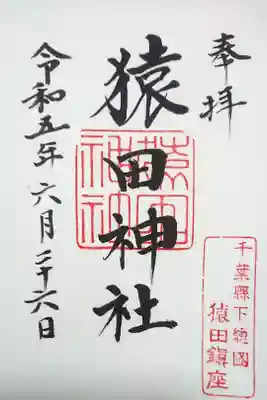 奉拝
猿田神社
令和五年六月二十六日
千葉縣下総國
猿田鎮座